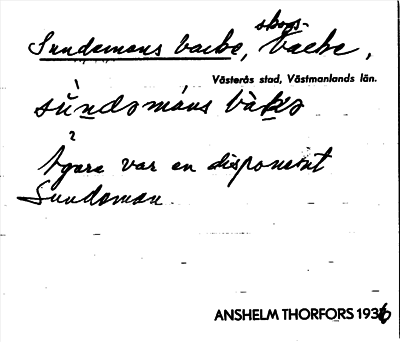 skogs-
Sundemans backe, backe,
Västerås stad, Västmanlands län.
sùndəmáns bàkə
?
Ägare var en disponent
Sundeman
ANSHELM THORFORS 1936